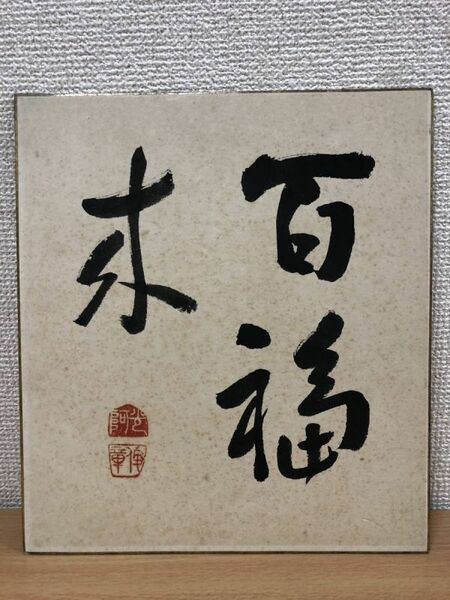 百福
来